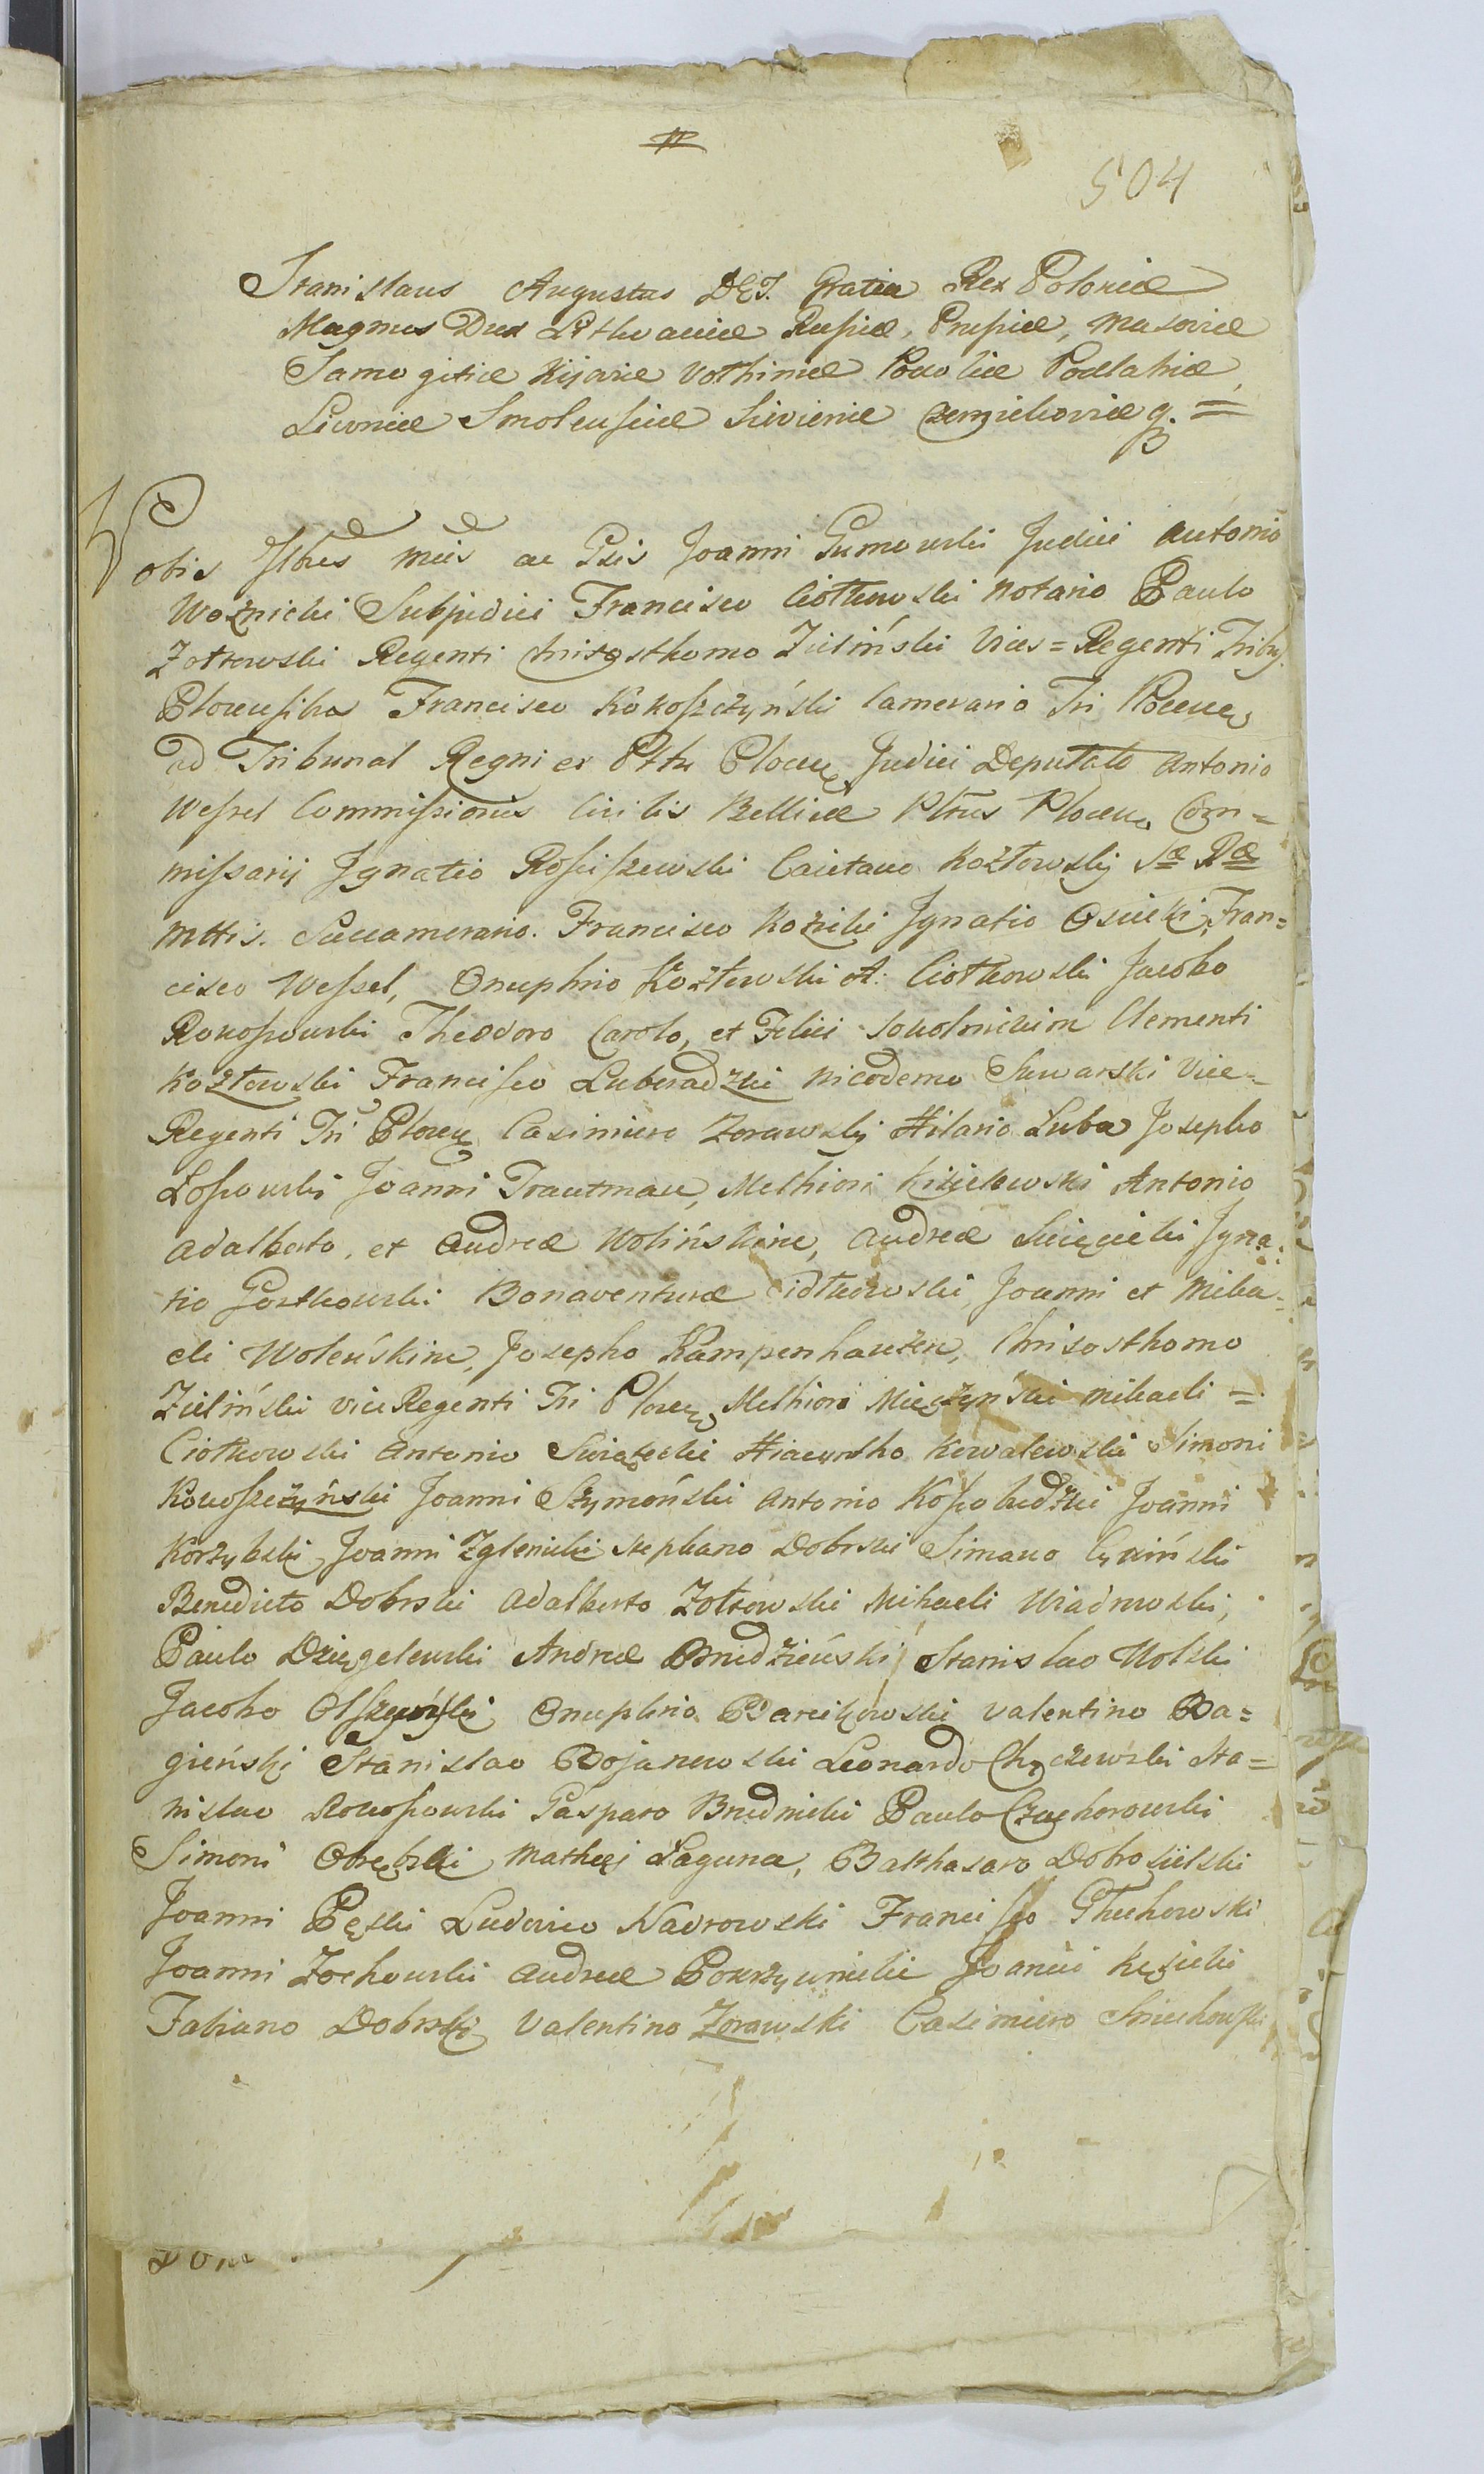 504
Stanislaus Augustus DEI. Gratia Rex Poloniæ
Magnus Dux Lithvaniæ Rußiæ, Prußiæ, Masoviæ
Samogitiæ Kijoviæ Volhiniæ Podoliæ Podlahiæ,
Livoniæ Smolensciæ Siвieriæ Czernichoviæ q. =
Vobis Illres meis ac Gsis Joanni Gumowski Judici Antonio
Woznicki Subjudici Francisco Ciołkowski Notario Paulo
Zołtowski Regenti Chrisosthomo Zieliński Vices = Regenti Tribu
Plocensibus Francisco Kokoszczyński Camerario Tri Plocen
ad Tribunal Regni ex Pttu Plocen Judici Deputato Antonio
Weßel Commißionis Civilis Bellicæ Pltus Plocen Com=
mißarij Ignatio Rościszewski Caietano Kozłowskij Sæ Ræ
Mttis. Succamerario. Francisco Kozicki Ignatio Osiecki, Fran=
cisco Weßel, Onuphrio Kozłowski A. Ciołkowski Jacobo
Rokoßowski Theodoro Carolo, et Felici Sokolnickim Clementi
Kozłowski Francisco Luberadzki Nicodemo Suwarski Vice=
Regenti Tri Plocen Casimiro Zorawskij Hilario Łuba Josepho
Łoßowski Joanni Trautman, Melhiori Kisielewski Antonio
Adalberto, et Andreæ Wolińskim, Andreæ Swięcicki Igna=
tio Gostkowski Bonaventuræ Ciołkowski, Joanni et Miha=
eli Woleńskim, Josepho Kampenhauzen, Chrisosthomo
Zieliński vice Regenti Tri Plocen Melhiori Mieszyński Mihaeli =
Ciołkowski Antonio Swiątecki Hiacyntho Kowalewski Simoni
Kokoszczyński Joanni Szymoński Antonio Koßobudzki Joanni
Korzybski Joanni Zglenicki Stephano Dobrski Simano
Benedicto Dobrski Adalberto Zołtowski Mihaeli Wiadrowski,
Paulo Dzięgelewski Andreæ Brudzieński Stanislao Wolski
Jacobo Onuphrio Barcikowski Valentino Ba=
gieński Stanislao Bojanowski Leonardo Chączewski Sta=
nislao Rokoßowski Gasparo Brudnicki Paulo Czachorowski
Simoni Obrębski Mathęi Laguna, Balthasaro Dobrosielski
Joanni Pęski Ludovico Nadrowski Francisco Głuchowski
Joanni Zochowski Andreæ Pokrzywnicki Joanni Kęsicki
Fabiano Dobrski Valentino Zorawski Casimiro Sniechowski